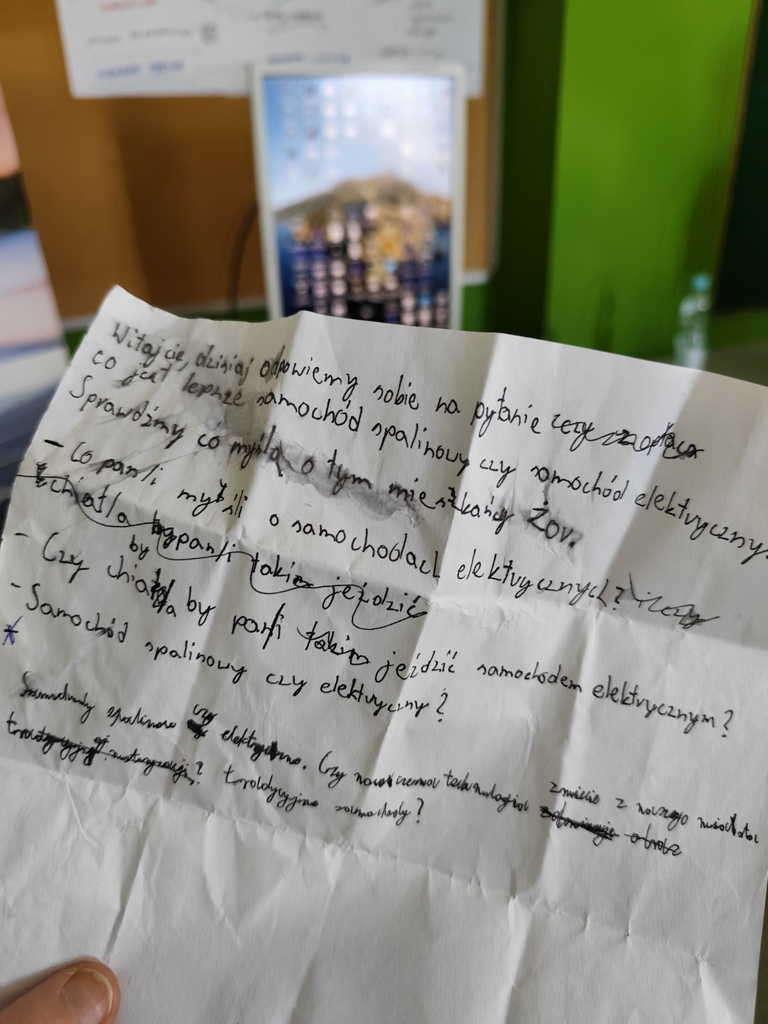 Witajcie, dzisiaj odpowiemy sobie na pytanie czy
co jest lepsze samochód spalinowy czy samochód elektryczny.
Sprawdźmy co myślą o tym mieszkańcy Żor.
- Co pani myśli o samochodach elektrycznych? i czy
chiałla by pani takim jeździć
- Czy chiałla by pani takim jeździć samochodem elektrycznym?
- Samochód spalinowy czy elektryczny?
Samochody spalinowe czy elektryczne. Czy nowoczesna technologia zmiecie z naszego miasta
tradycyjne samochody?